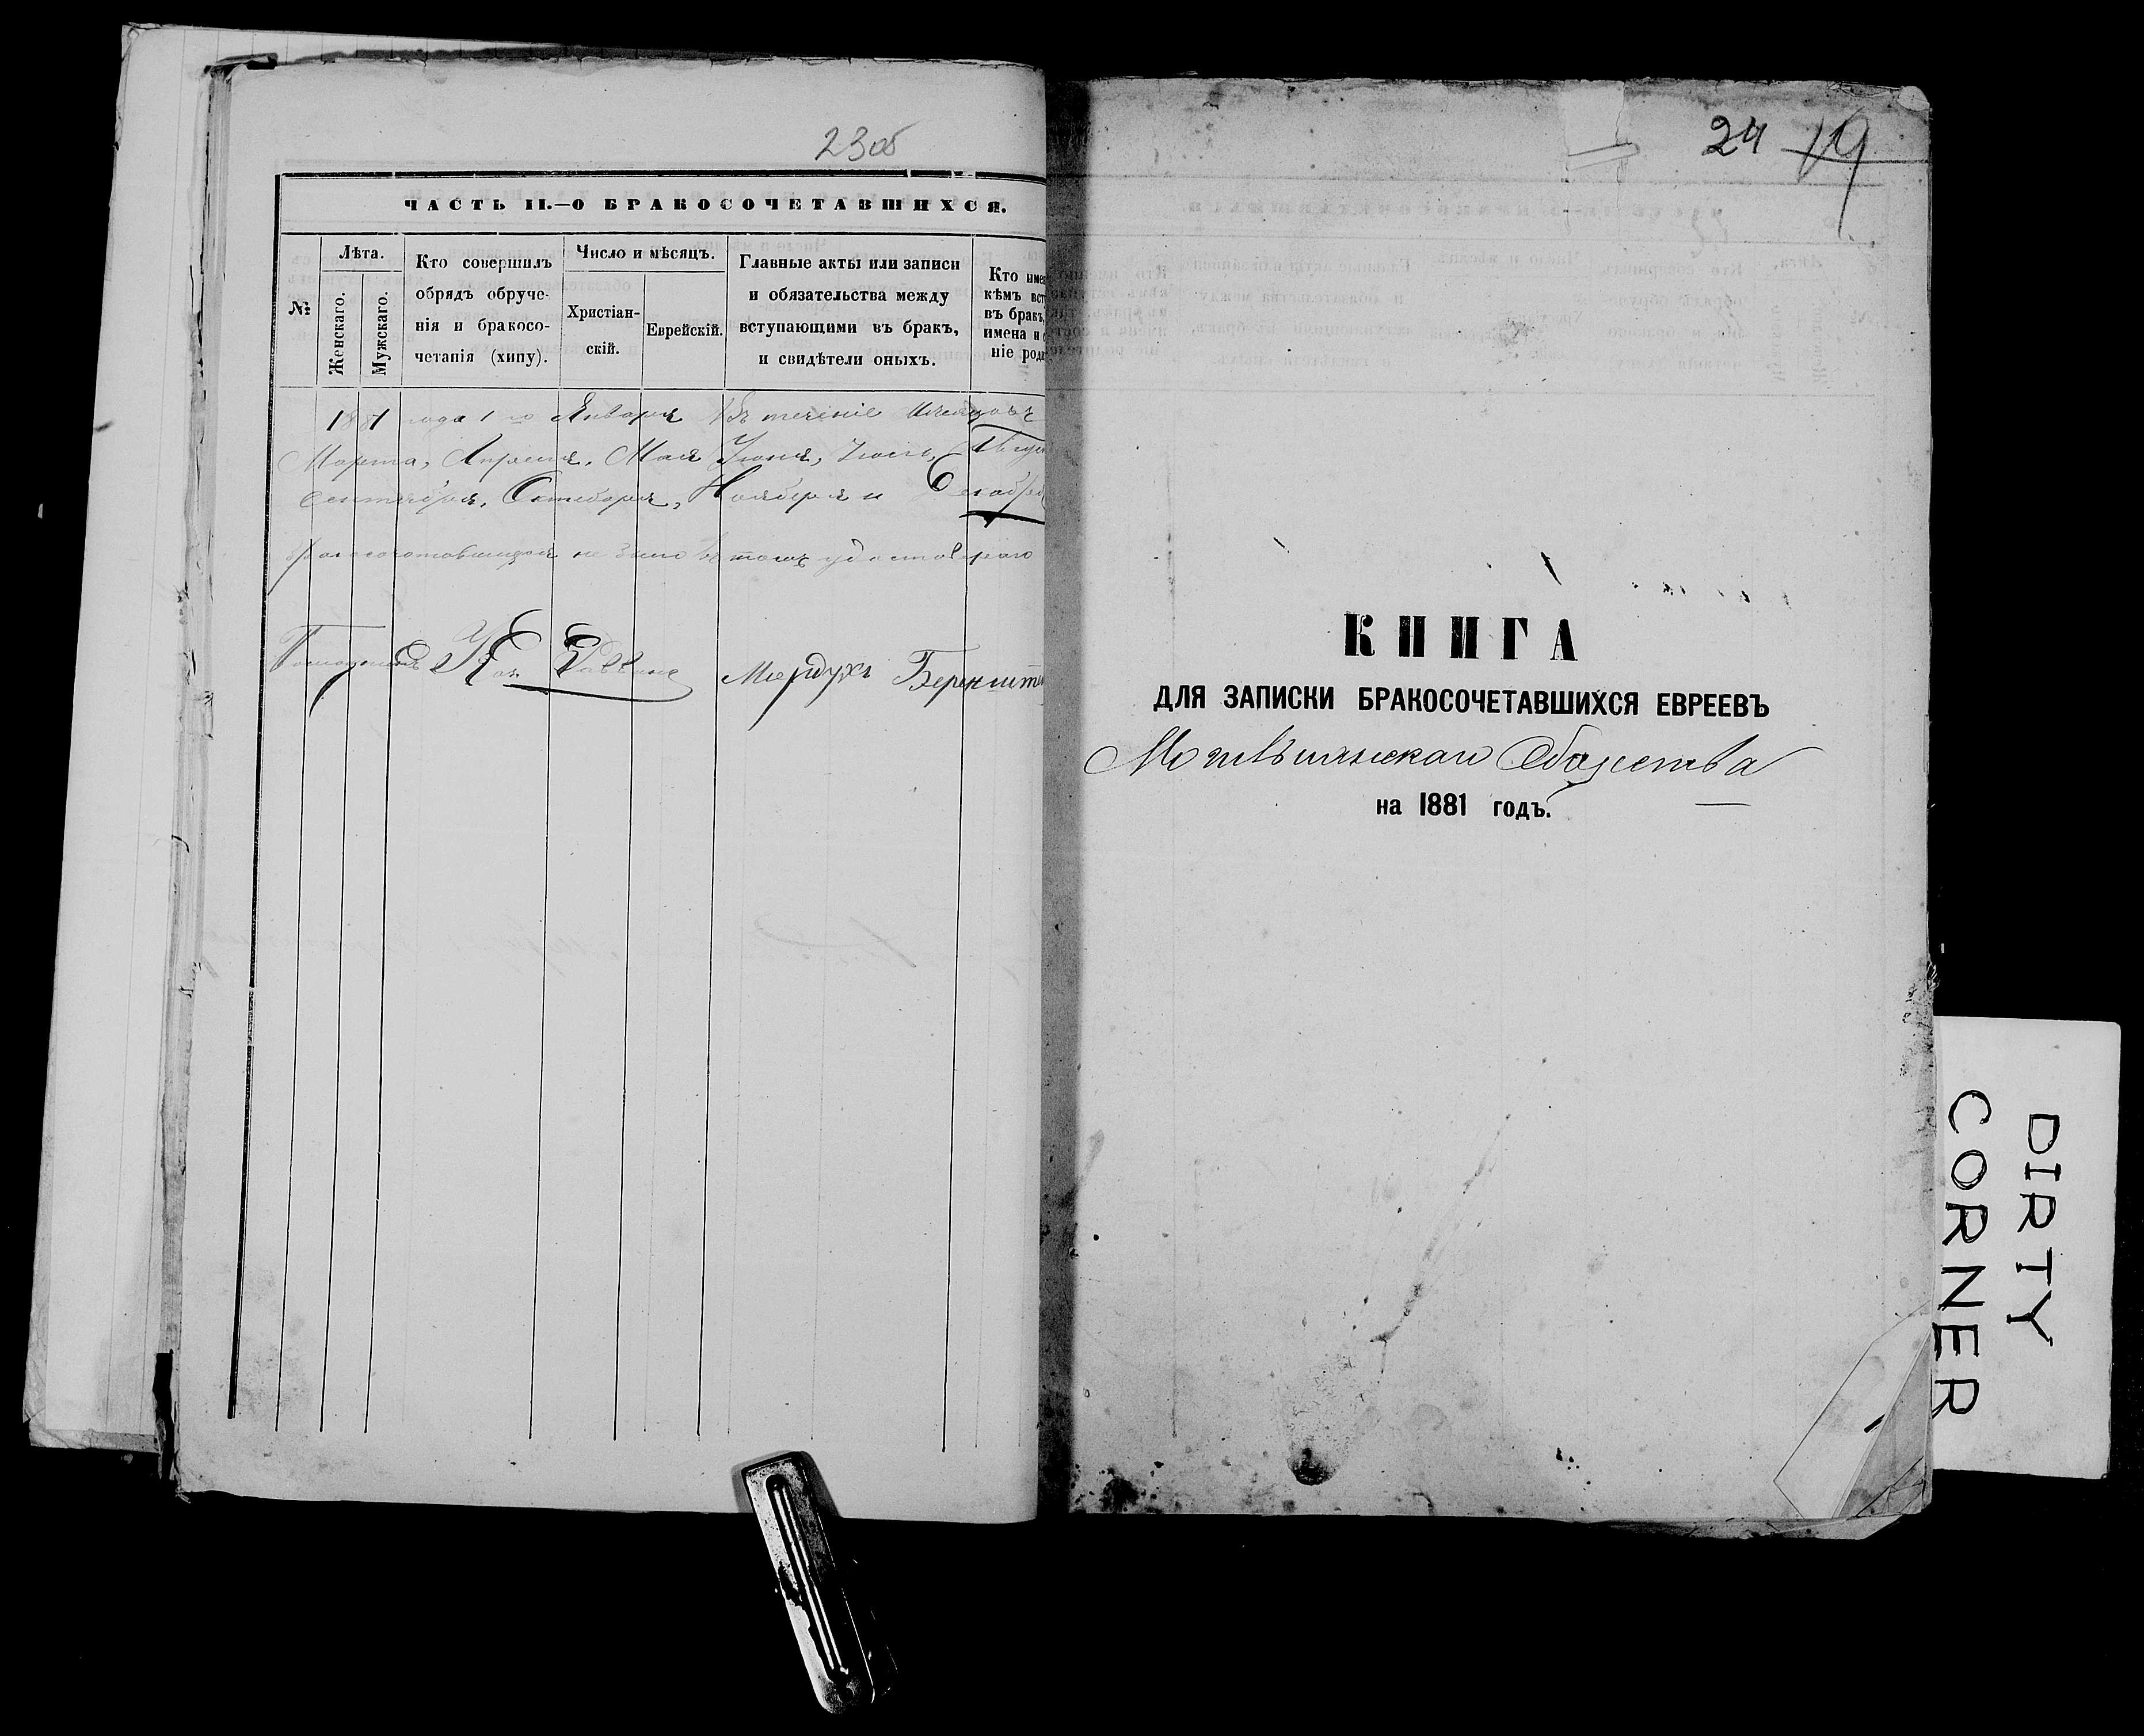 23об
ЧАСТЬ II.—О БРАКОСОЧЕТАВШИХСЯ.
№
Лѣта.
Женскаго.
Мужскаго.
Кто совершилъ
обрядъ обруче-
нія и бракосо-
четанія (хипу).
Число и мѣсяцъ.
Христіан-
скій.
Еврейскій.
Главные акты или записи
и обязательства между
вступающими въ бракъ,
и свидѣтели оныхъ.
Кто име
кѣмъ вст
въ бракъ,
имена и с
ніе роди
1881 года 1 го Января въ теченіе
Марта, Апреля, Мая Іюня, Іюль, Авгу
Сентября, Октебаря, Ноября и Декабря
бракосочотавшихся не било в томъ удостоверяю
Раввина Мордухъ Беренште
24 19
КНИГА
ДЛЯ ЗАПИСКИ БРАКОСОЧЕТАВШИХСЯ ЕВРЕЕВЪ
Общества
на 1881 годъ.
DIRTY
CORNER